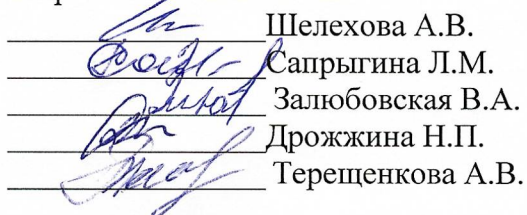 Шелехова А.В.
Сапрыгина Л.М.
Залюбовская В.А.
Дрожжина Н.П.
Терещенкова А.В.